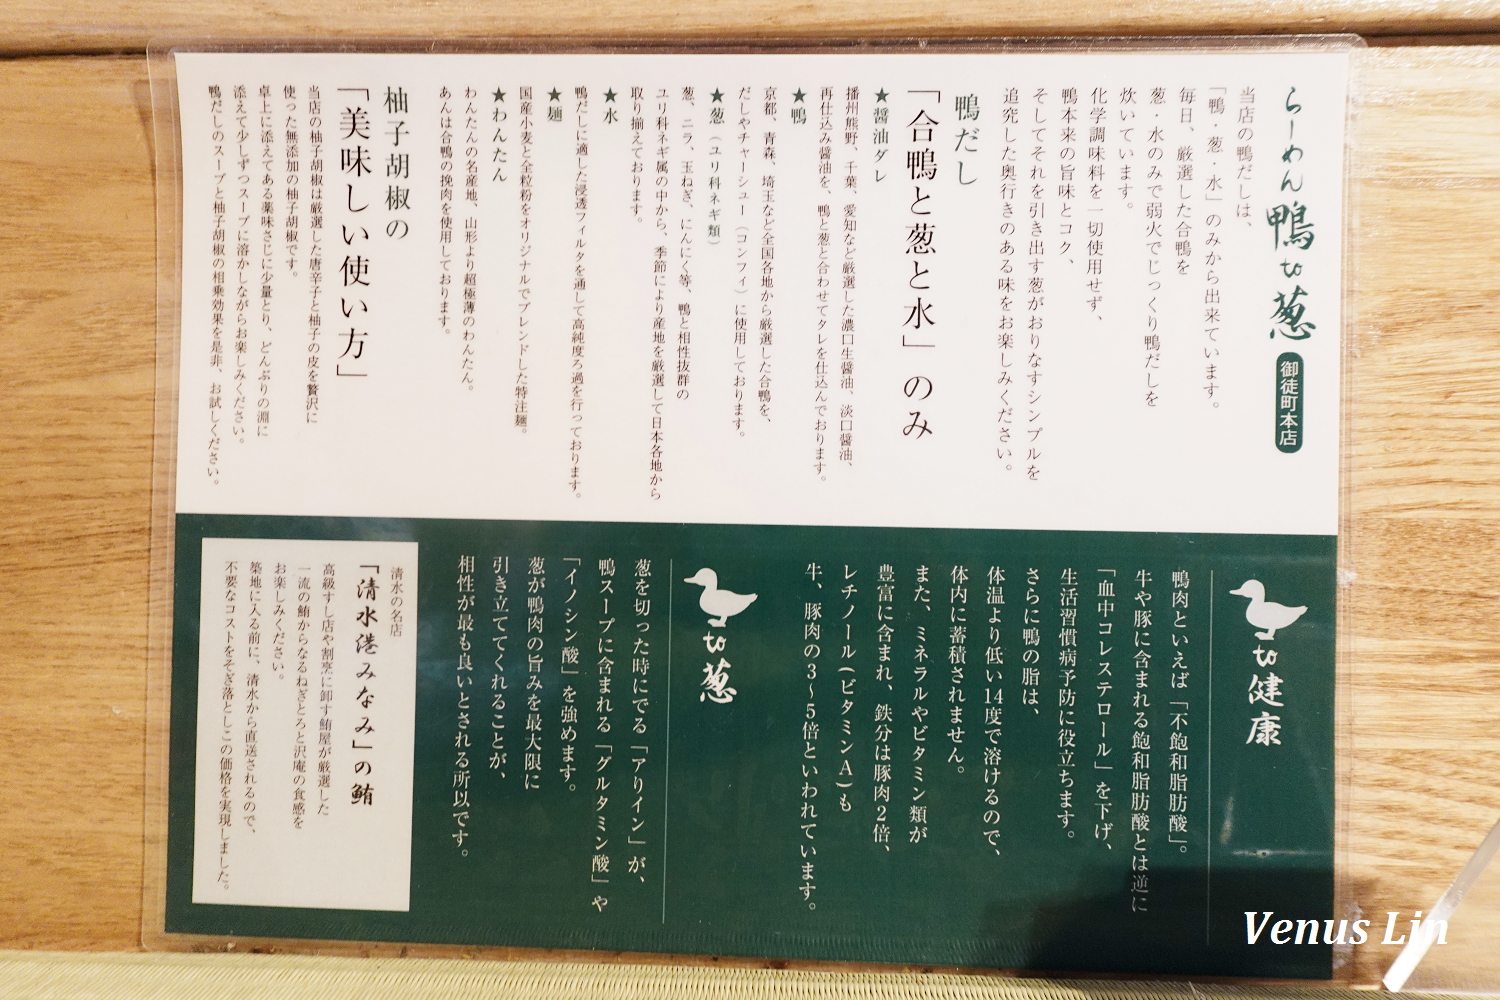 らーめん 鴨 to 葱 御徒町本店
当店の鴨だしは、
「鴨・葱・水」のみから出来ています。
毎日、厳選した合鴨を
葱・水のみで弱火でじっくり鴨だしを
炊いています。
化学調味料を一切使用せず、
鴨本来の旨味とコク、
そしてそれを引き出す葱がおりなすシンプルを
追究した奥行きのある味をお楽しみください。
鴨だし
「合鴨と葱と水」のみ
★醤油ダレ
播州熊野、千葉、愛知など厳選した濃口生醤油、淡口醤油、
再仕込み醤油を、鴨と葱と合わせてタレを仕込んでおります。
★鴨
京都、青森、埼玉など全国各地から厳選した合鴨を、
だしやチャーシュー（コンフィ）に使用しております。
★葱（ユリ科ネギ類）
葱、ニラ、玉ねぎ、にんにく等、鴨と相性抜群の
ユリ科ネギ属の中から、季節により産地を厳選して日本各地から
取り揃えております。
★水
鴨だしに適した浸透フィルタを通して高純度ろ過を行っております。
★麺
国産小麦と全粒粉をオリジナルでブレンドした特注麺。
★わんたん
わんたんの名産地、山形より超極薄のわんたん。
あんは合鴨の挽肉を使用しております。
柚子胡椒の
「美味しい使い方」
当店の柚子胡椒は厳選した唐辛子と柚子の皮を贅沢に
使った無添加の柚子胡椒です。
卓上に添えてある薬味さじに少量とり、どんぶりの淵に
添えて少しずつスープに溶かしながらお楽しみください。
鴨だしのスープと柚子胡椒の相乗効果を是非、お試しください。
to 健康
鴨肉といえば「不飽和脂肪酸」。
牛や豚に含まれる飽和脂肪酸とは逆に
「血中コレステロール」を下げ、
生活習慣病予防に役立ちます。
さらに鴨の脂は、
体温より低い14度で溶けるので、
体内に蓄積されません。
また、ミネラルやビタミン類が
豊富に含まれ、鉄分は豚肉2倍、
レチノール(ビタミンA)も
牛、豚肉の3〜5倍といわれています。
to 葱
葱を切った時にでる「アリイン」が、
鴨スープに含まれる「グルタミン酸」や
「イノシン酸」を強めます。
葱が鴨肉の旨みを最大限に
引き立ててくれることが、
相性が最も良いとされる所以です。
清水の名店
「清水港みなみ」の鮪
高級すし店や割烹に卸す鮪屋が厳選した
一流の鮪からなるねぎとろと沢庵の食感を
お楽しみください。
築地に入る前に、清水から直送されるので、
不要なコストをそぎ落としこの価格を実現しました。
Venus Lin